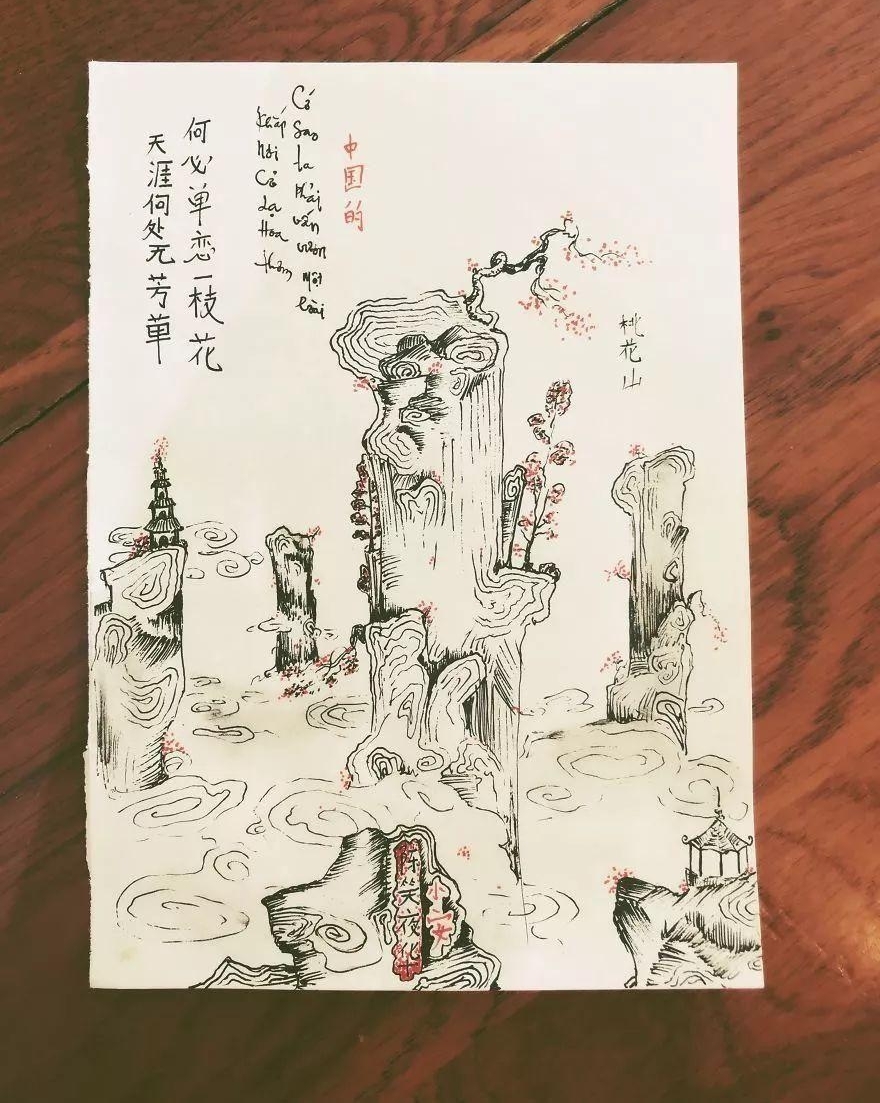 桃花山
中国的
Cớ Sao ta Phải vấn vươn Một loài
Khắp Nơi Cỏ dạ Hoa thơm
何必单恋一枝花
天涯何处无芳草
小安